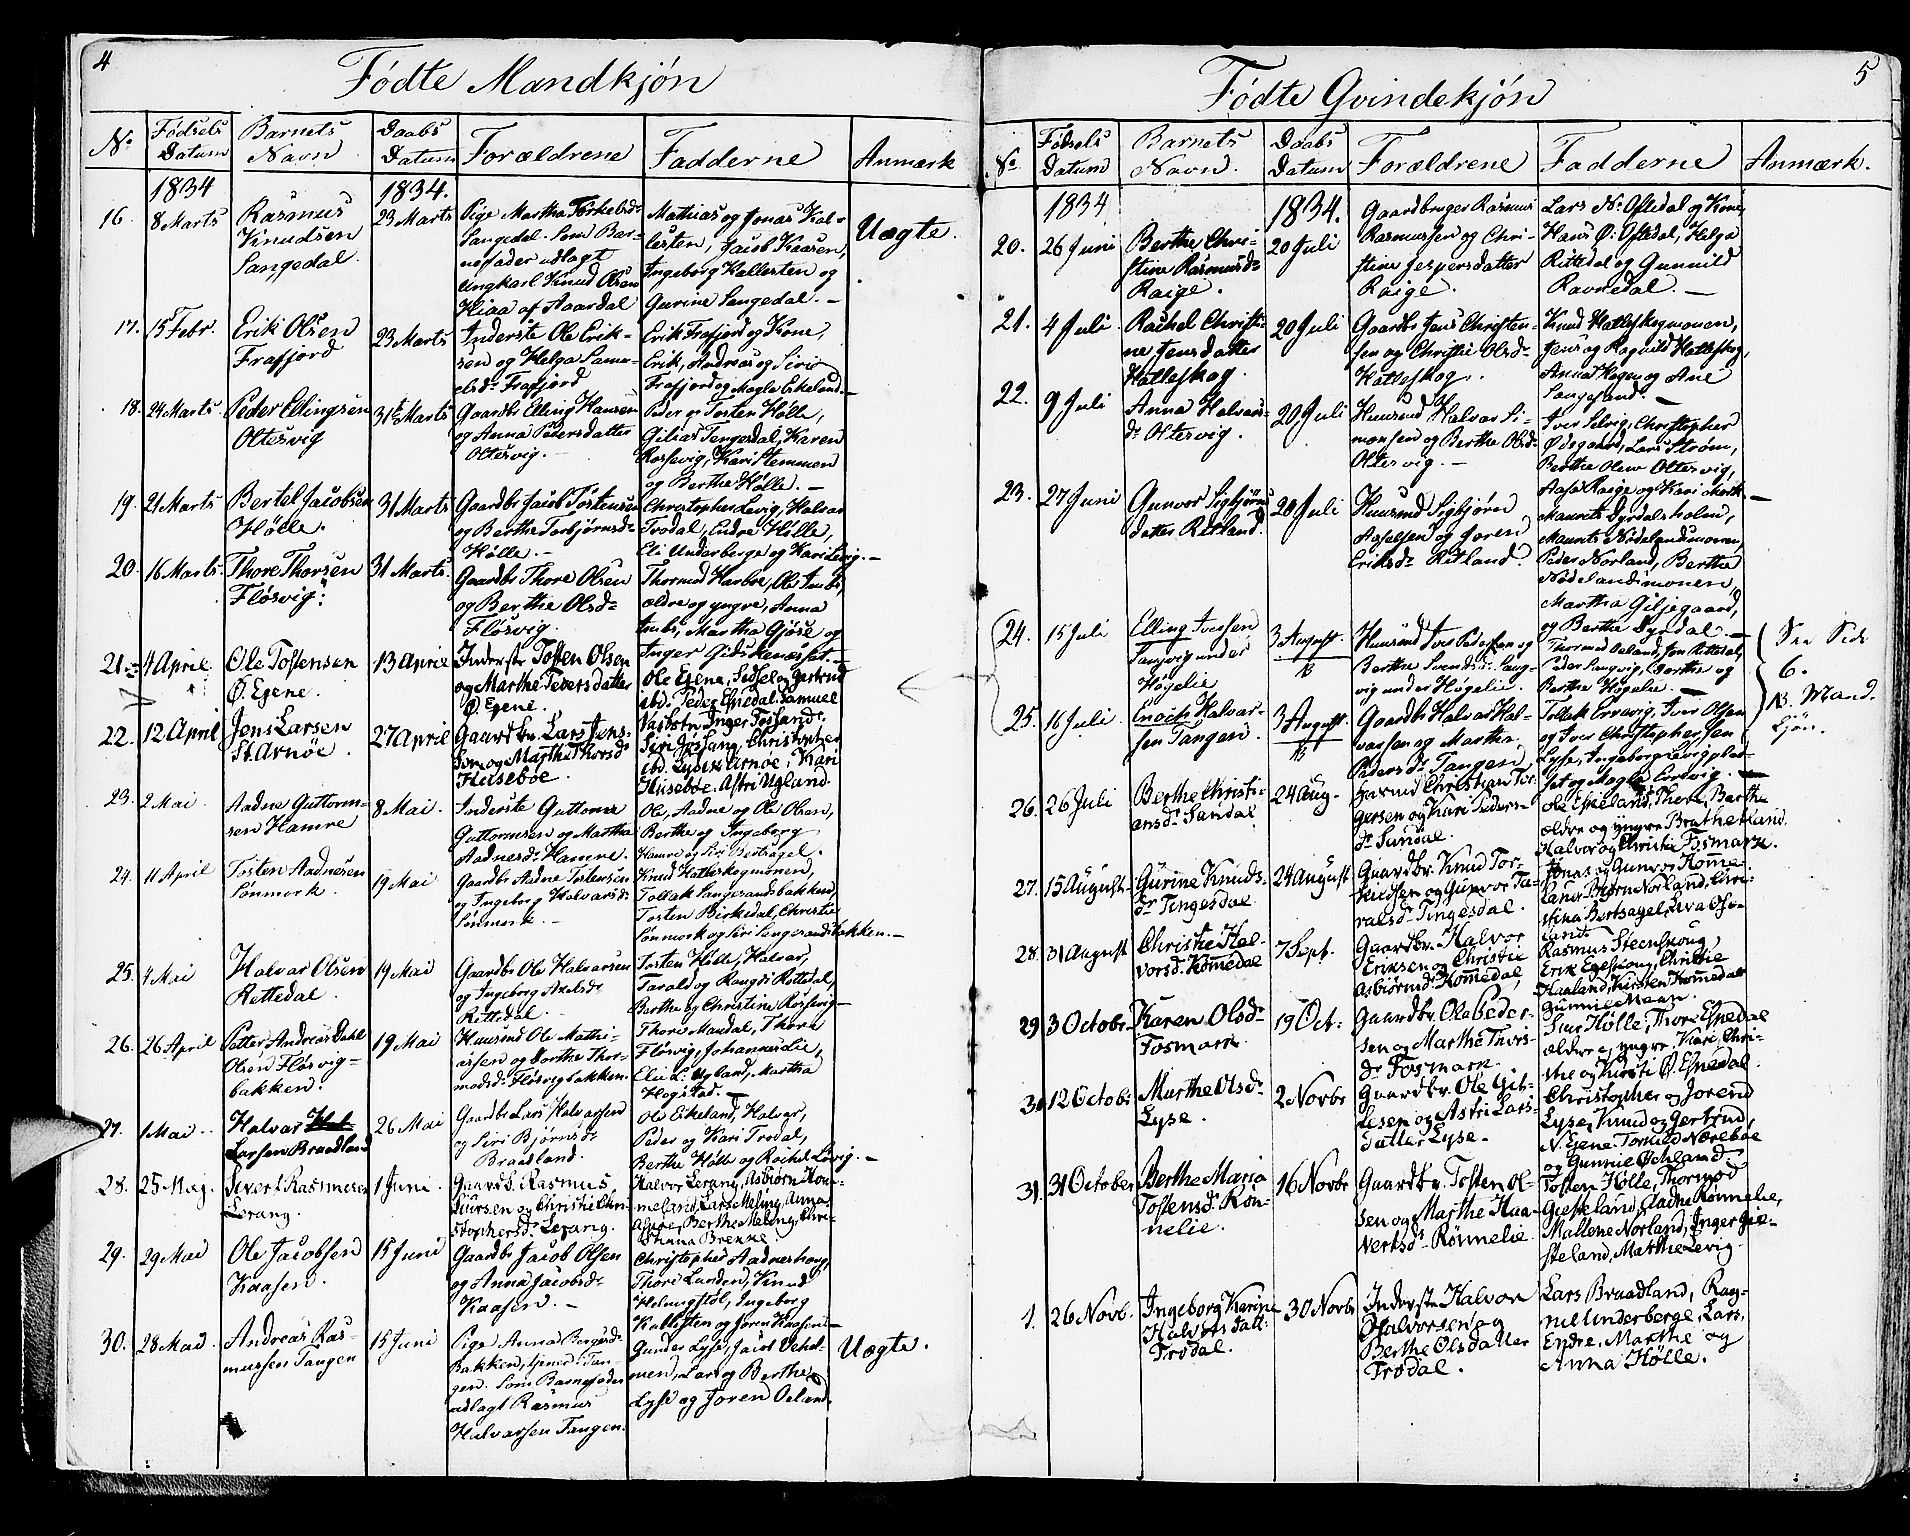 4
Fødte Mandkjøn
No
Fødsels Datum
Barnets Navn
Daabs Datum
Forældrene
Fadderne
Anmærk
1834
1834.
16. 8 Marts
Rasmus
Knudsen
Sangedal.
23 Marts
Pige Martha Torkelsd:
Sangedal. Som Bar-
nefader udlagt
ungkarl Knud Olsen
Hiaa af Aardal
Mathias og Jonas Kal-
lesten, Jacob Kaasen,
Ingeborg Kallesten og
Gurine Sangedal. —
Uægte.
17. 15 Febr.
Erik Olsen
Frafjord
23 Marts
Inderste Ole Erik-
sen og Helga Samu-
elsd: Frafjord
Erik Frafjord og Kone,
Erik, Andreas og Siri
Frafjord og Magla Eikeland.—
18. 24 Marts.
Peder Ellingsen
Oltesvig
31te Marts
Gaardbr Elling Hansen
og Anna Pedersdatter
Oltesvig. —
Peder og Tosten Hølle,
Gilias Tengesdal, Karen
Rossevig, Kari Stemmen
og Berthe Hølle. —
19. 21 Marts
Bertel Jacobsen
Hølle.
31 Marts
Gaardbr Jacob Tostensen
og Berthe Torbjørnsd:
Hølle. —
Christopher Levig, Halvar
Trodal, Endre Hølle,
Eli Underberge og Kari Levig. —
20. 16 Marts.
Thore Thorsen
Fløsvig.
31 Marts
Gaardbr Thore Olsen
og Berthe Olsd:
Fløsvig.
Thormod Harboe, Ole Imbs,
ældre og yngre, Anna
Imbs, Martha Gjøse og
Inger Gidskenæsset. —
21. 4 April.
Ole Tostensen
Ø. Egene.
13 April
Inderste Tosten Olsen
og Marthe Peders datter
Ø. Egene.
Ole Egene, Sidsel og Gertrud
ibd. Peder Eskedal. Samuel
22. 12 April
Jens Larsen
St. Arnøe.
27 April
Gaardbr. Lars Jens-
sen og Marthe Thorsd:
Huseboe.
Siri Jøssang, Christopher
ibd. Arnøe, Kari
Huseboe. Astri Ugland
23. 2 Mai.
Aadne Guttorm-
sen Hamre
8 Mai.
Inderste Guttorm
Guttormsen og Martha
Aadnesd: Hamre.
Ole, Aadne og Ole Olsen,
Berthe og Ingeborg
Hamre og Siri Bertsagel.
24. 11 April
Tosten Aadnesen
Lønmork.
19 Mai
Gaardbr Aadne Tostensen
og Ingeborg Halvarsd:
Lønmork. —
Knud Hatleskogmonen,
Tollak Sangesandsbakken,
Tosten Birkedal, Christie
Lønmork og Siri Sangesandsbakken. —
25. 4 Mai
Halvar Olsen
Rettedal.
19 Mai
Gaardbr Ole Halvarsen
og Ingeborg Axelsd:
Rettedal. —
Tosten Hølle, Halvar,
Tarald og Rangdi Rettedal,
Berthe og Christine Rossevig —
26. 26 April
Petter Andreas Dahl
Olsen Fløsvig-
bakken.
19 Mai
Huusmd Ole Mathi-
assen og Dorthe Thor-
modsd: Fløsvigbakken.
Thore Mandal, Thore
Fløsvig, Johannes Lie,
Eli L: Ugland, Martha
Hogstad. —
27. 1 Mai.
Halvar
Larsen Braadland
26 Mai
Gaardbr Lars Halvarsen
og Siri Bjørnsd:
Braadland.
Ole Eikeland, Halvar,
Peder og Kari Trodal,
Berthe Hølle og Rachel Levig. —
28. 25 Mai.
Sivert Rasmusen
Lerang.
1 Juni.
Gaardbr. Rasmus
Siursen og Christie Chri-
stophersd: Lerang.
Halvor Lerang, Asbiørn Kom-
meland, Lars Meling, Anna
Berthe Meling, Chri-
stiana Brekke
29. 29 Mai
Ole Jacobsen
Kaasen.
15 Juni
Gaardbr Jacob Olsen
og Anna Jacobsd:
Kaasen. —
Christopher Aadneskoug,
Thore Lunden, Knud
Helmigstøl, Ingeborg
Kallesten og Joren Kaasen. —
30. 28 Mai
Andreas Ras-
mussen Tangen
15 Juni
Pige Anna Bergesd:
Bakken, tjener i Tan-
gen. Som Barnefader
udlagt Rasmus
Halvarsen Tangen.
Gunder Lyse, Jacob Ochel-
monen, Lars og Berthe
Lyse og Joren Oeland.
Uægte.
5
Fødte Qvindekjøn
No
Fødsels Datum
Barnets Navn.
Daabs Datum
Forældrene
Fadderne
Anmærk.
1834
1834.
20. 26 Juni
Berthe Chri-
stine Rasmusd:
Raige.
20 Juli
Gaardbruger Rasmus
Rasmussen og Chri-
stine Jespersdatter
Raige.
Lars N. Oftedal og Kone,
Hans Ø. Oftedal, Helga
Rittedal og Gunnild
Ravnedal. —
21. 4 Juli
Rachel Christi-
ne Jensdatter
Hatleskog.
20 Juli
Gaardbr Jens Christen-
sen og Christie Olsd:
Hatleskog.
Knud Hatleskogmonen,
Jens og Ragnild Hatleskog,
Anna Hogen og Ane
Sangesand. —
22. 9 Juli
Anna Halvars-
d: Oltesvig.
20 Juli
Huusmd Halvar Si-
monsen og Berthe Olsd:
Oltesvig. —
Iver Selvig, Christopher
Ødegaard, Lars Strøm,
Berthe Olea Oltesvig,
Aasa Raige og Kari Mork —
23. 27 Juni
Gunvor Sigbjørns
datter Ritland.
20 Juli
Huusmd Sigbjørn
Asselsen og Joren
Eriksd: Ritland.
Maurits Dyrdalsholm,
Maurits Nødelandsmonen,
Peder Norland, Berthe
Nødelandsmonen,
Martha Giljegaard,
og Berthe Dyrdal —
24. 15 Juli
Elling Ivessen
Sangvig under
Høgelie
3 August
Huusmd Ives Pedersen og
Berthe Svendsd: Sang-
vig under Høgelie.
Thormod Oeland, Jon Rettedal,
Peder Sangvig, Dorthe og
Berthe Høgelie. —
See Side
6.
B. Mand.
kjøn.
25. 16 Juli
Enoch Halvar-
sen Tangen.
3 August.
Gaardbr Halvar Hal-
varsen og Martha
Pedersd: Tangen
Tollak Ervævig, Iver Olsen
og Iver Christophersen
Lyse, Ingeborg Levigplad-
set og Magla Eidevig. —
26. 26 Juli
Berthe Christi-
ansd: Sandal
24 Aug.
Huusmd Christian Tor-
gersen og Kari Peders-
d: Sandal.
Ole Eskeland, Thore, Berthe
ældre og yngre Bratheland.
Halvor og Christie Fosmark.
27. 15 August
Gurine Knuds-
dr Tingesdal
24 August
Gaardbr. Knud Tor-
kildsen og Gunvor Ta-
ralsd: Tingesdal.
Jonas og Gunvor Komme-
land Biørn Norland, Chri-
stina Bertsagel, Siva Ose-
land.
28. 31 August
Christie Hal-
vorsd. Kommedal
7 Sept.
Gaardbr. Halvor
Eriksen og Christie
Asbiørnsd: Kommedal,
Rasmus Steenskoug,
Erik Egeskoug, Christie
Haaland, Kirsten Kommedal
Gunnil Maan.
29. 3 Octobr.
Karen Olsd:
Fosmark.
19 Oct.
Gaardbr. Ole Peder-
sen og Marthe Thors-
dr Fosmark.
Siur Hølle, Thore Eskedal
ældre og yngre, Kari, Chri-
stie og Kirsti Ø. Eskedal
30 12 Octobr
Marthe Olsd:
Lyse.
2 Novbr
Gaardbr. Ole Git-
lesen og Astri Lars-
datter Lyse.
Christopher og Jorend
Lyse, Knud og Gertrud,
N. Egene. Tormod Næreboe
og Gunnil Ochland.
31. 31 October
Berthe Maria
Tostensd: Røn-
nelie.
16 Novbr
Gaardbr. Tosten Ol-
sen og Marthe Haa-
versd. Rønnelie.
Tosten Hølle, Thormod
Gieseland, Aadne Rønnelie,
Mallene Norland, Inger Gie-
steland, Marthe Levig.
1. 26 Novb.
Ingeborg Karine
Halvorsdatt:
Trodal.
30 Novbr
Inderste Halvor
Halvorsen og
Berthe Olsdatter
Trodal.
Lars Braadland, Rag-
nil Underberge, Lars,
Endre, Marthe og
Anna Hølle.